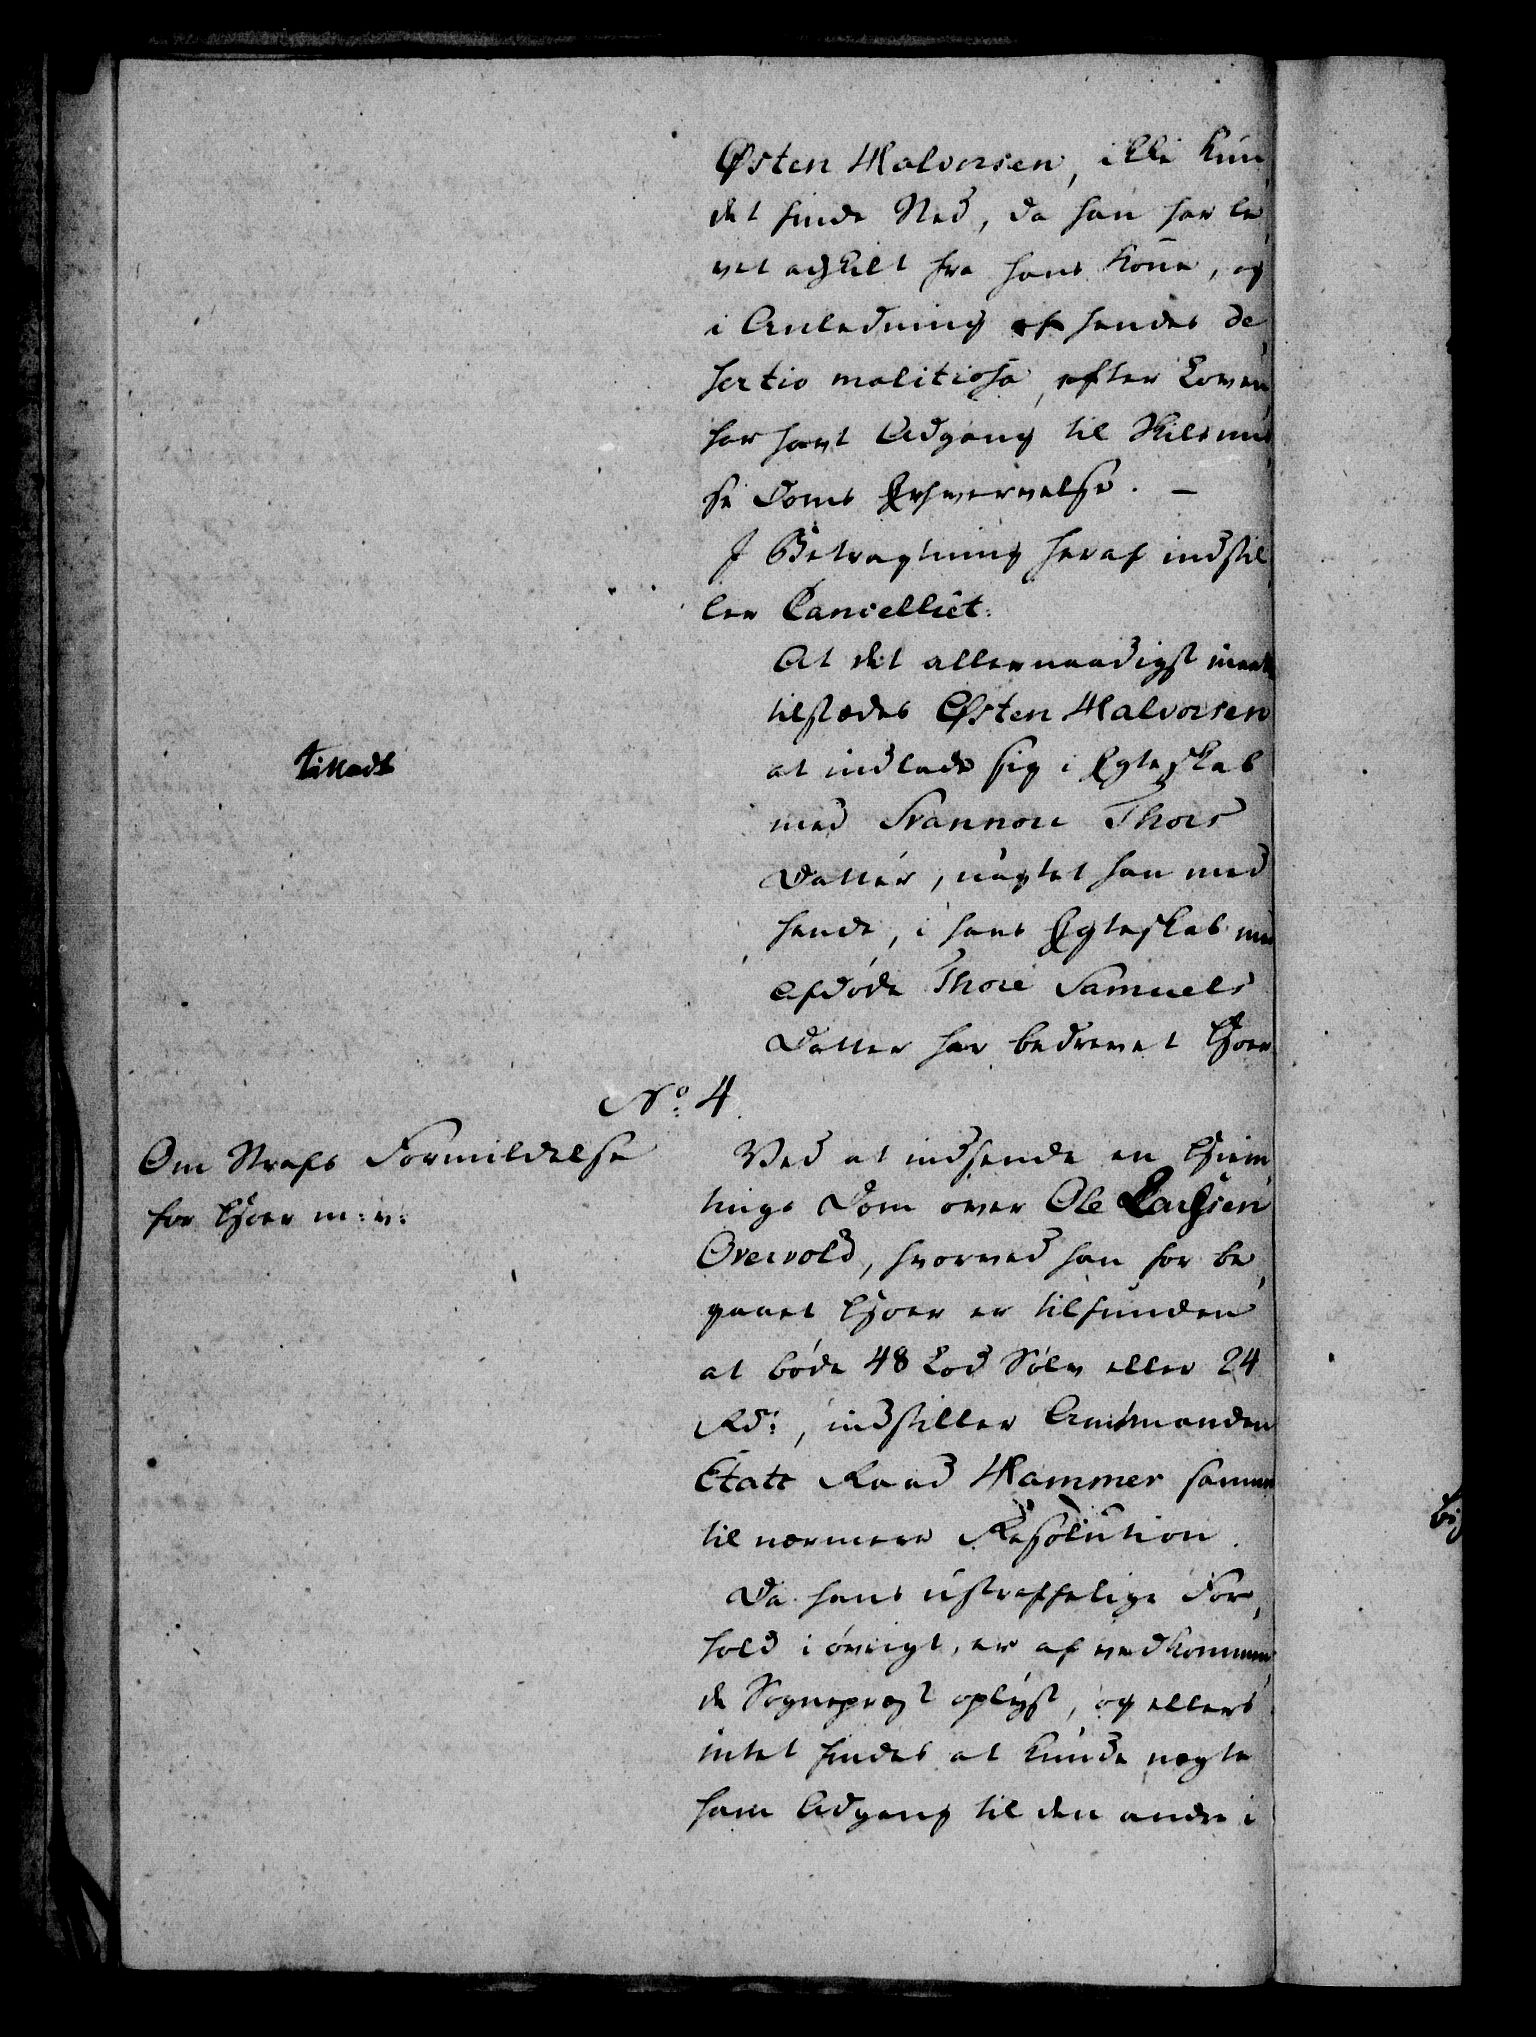 Østen Halvorsen, ikke kun
det finde Sted, da han har le
vet adskilt fra hans Kone, og
i Anledning af hendes de
sertio malitiosa, efter Loven
har havt Adgang til Skilsmis
se Doms Erhvervelse. –
I Betragtning heraf indstil
ler Cancelliet:
At det allernaadigst maatte
tilstædes Østen Halvorsen
at indlade sig i Egteskab
Tilladt
med Svannou Thors
Datter, uagtet han med
hende, i hans Egteskab med
afdøde Thore Samuels
Datter har bedrevet Hoer
No: 4.
Om Strafs Formildelse
for Hoer m: v:
Ved at indsende en Hiem
tings Dom over Ole Larsen
Overvold, hvorved han for be
gaaet Hoer er tilfunden
at bøde 48 Lod Sølv eller 24
Rd:, indstiller Amtmanden
Etats Raad Hammer samme
til nærmere Resolution.
Da hans ustraffelige For
hold i øvrigt, er af vedkommen
de Sognepræst oplyst, og ellers
intet findes at kunde nægte
ham Adgang til den andre i